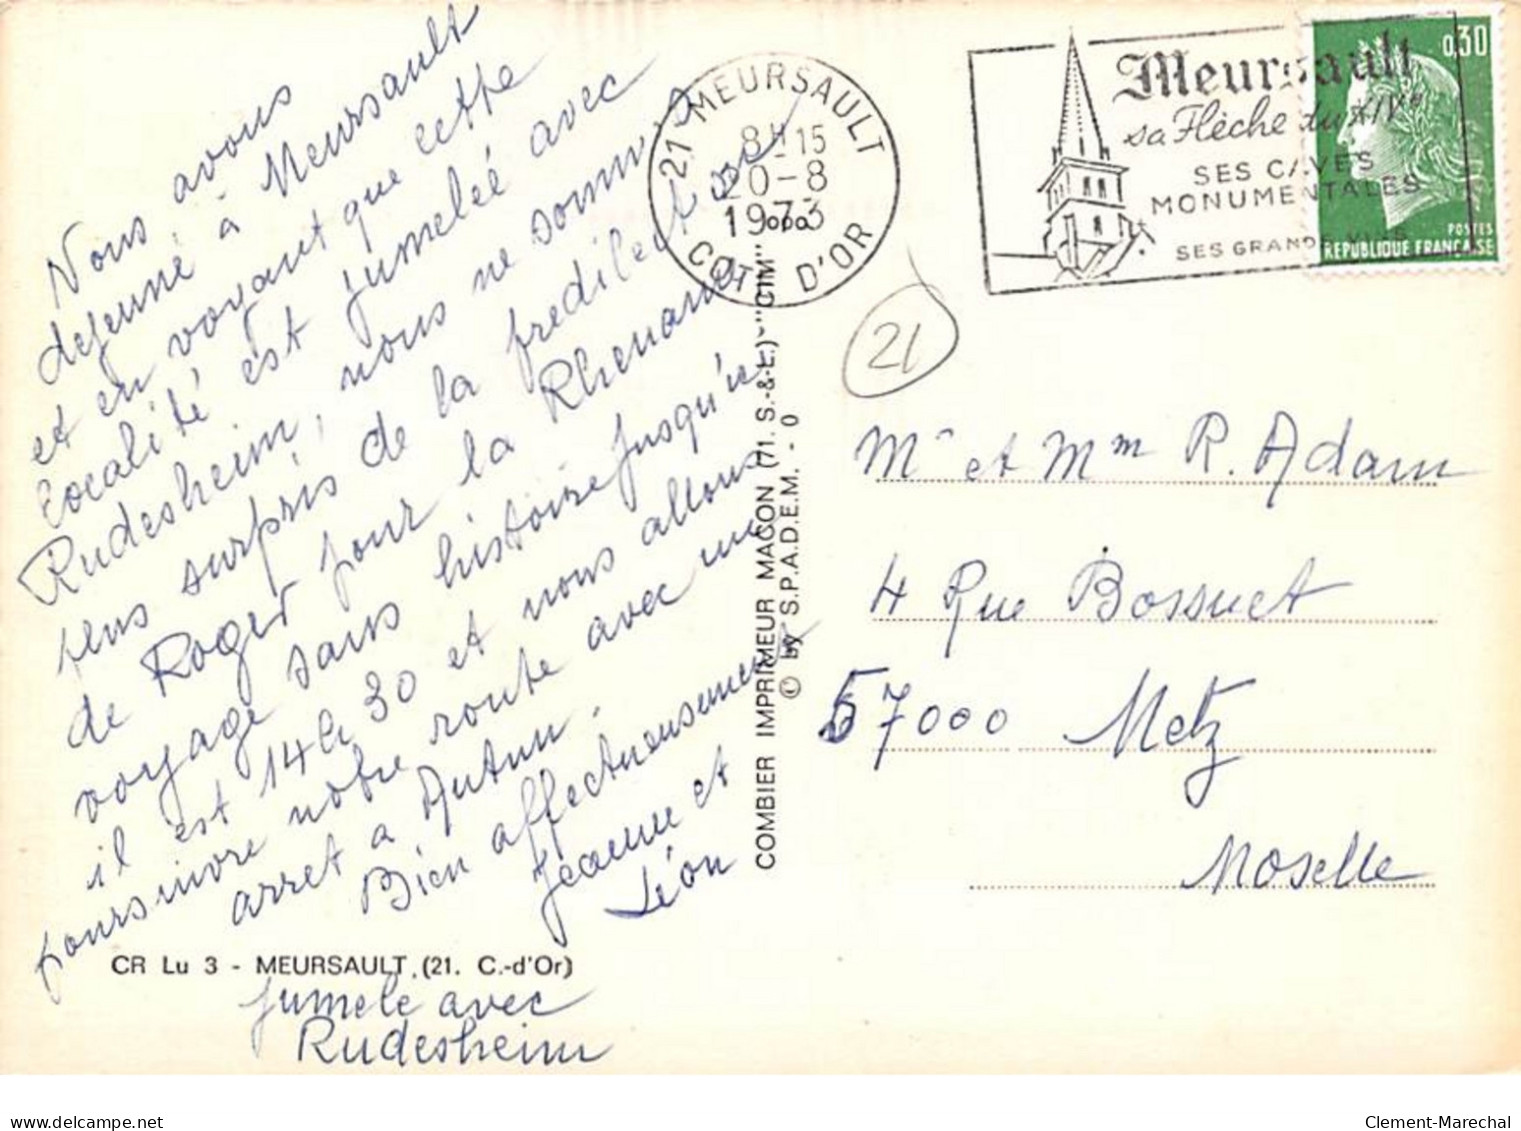 Nous avons
dejeuné à Meursault
et en voyant que cette
localité est jumeleé avec
Rudesheim, nous ne sommes
plus surpris de la predilection
de Roger pour la Rhenanie
voyage sans histoire jusqu'ici
il est 14h30 et nous allons
poursuivre notre route avec un
arret a Autun.
Bien affectueusement
Jeanne et
Léon
CR Lu 3 - MEURSAULT (21. C.-d'Or)
Jumelé avec
Rudesheim
COMBIER IMPRIMEUR MACON (71. S.-&-L.) "CIM"
© by S.P.A.D.E.M. - 0
21 MEURSAULT
8H15
20-8
1973
COTE D'OR
Meursault
sa Flèche du XIVe
SES CAVES
MONUMENTALES
SES GRANDS VINS
0,30
POSTES
REPUBLIQUE FRANÇAISE
21
Mr et Mm R. Adam
4 Rue Bossuet
57000 Metz
Moselle
delcampe.net
Clement-Marechal